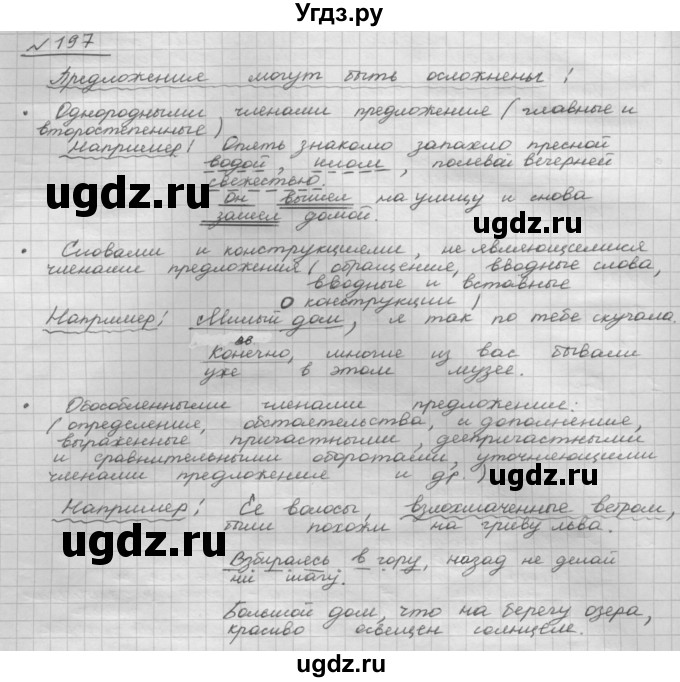 Угдз.ру
№197
Предложения могут быть осложнены:
• Однородными членами предложения (главные и
второстепенные)
Например: Опять знакомо запахло пресной
водой, илом, полевой вечерней
свежестью.
Он вышел на улицу и снова
зашел домой.
ugdz.ru ugdz.ru
• Словами и конструкциями, не являющимися
членами предложения (обращение, вводные слова,
вводные и вставные
конструкции)
О
Например: Милый дом, я так по тебе скучала.
вв
Конечно, многие из вас бывали
уже в этом музее.
ugdz.ru
• Обособленными членами предложения:
(определения, обстоятельства, и дополнения,
выраженные причастными, деепричастными
и сравнительными оборотами, уточняющими
членами предложения и др.)
Например: Её волосы, взлохмаченные ветром,
были похожи на гриву льва.
ugdz.ru ugdz.ru
Взбираясь в гору, назад не делай
ни шагу.
Большой дом, что на берегу озера,
красиво освещен солнцем.
ugdz.ru